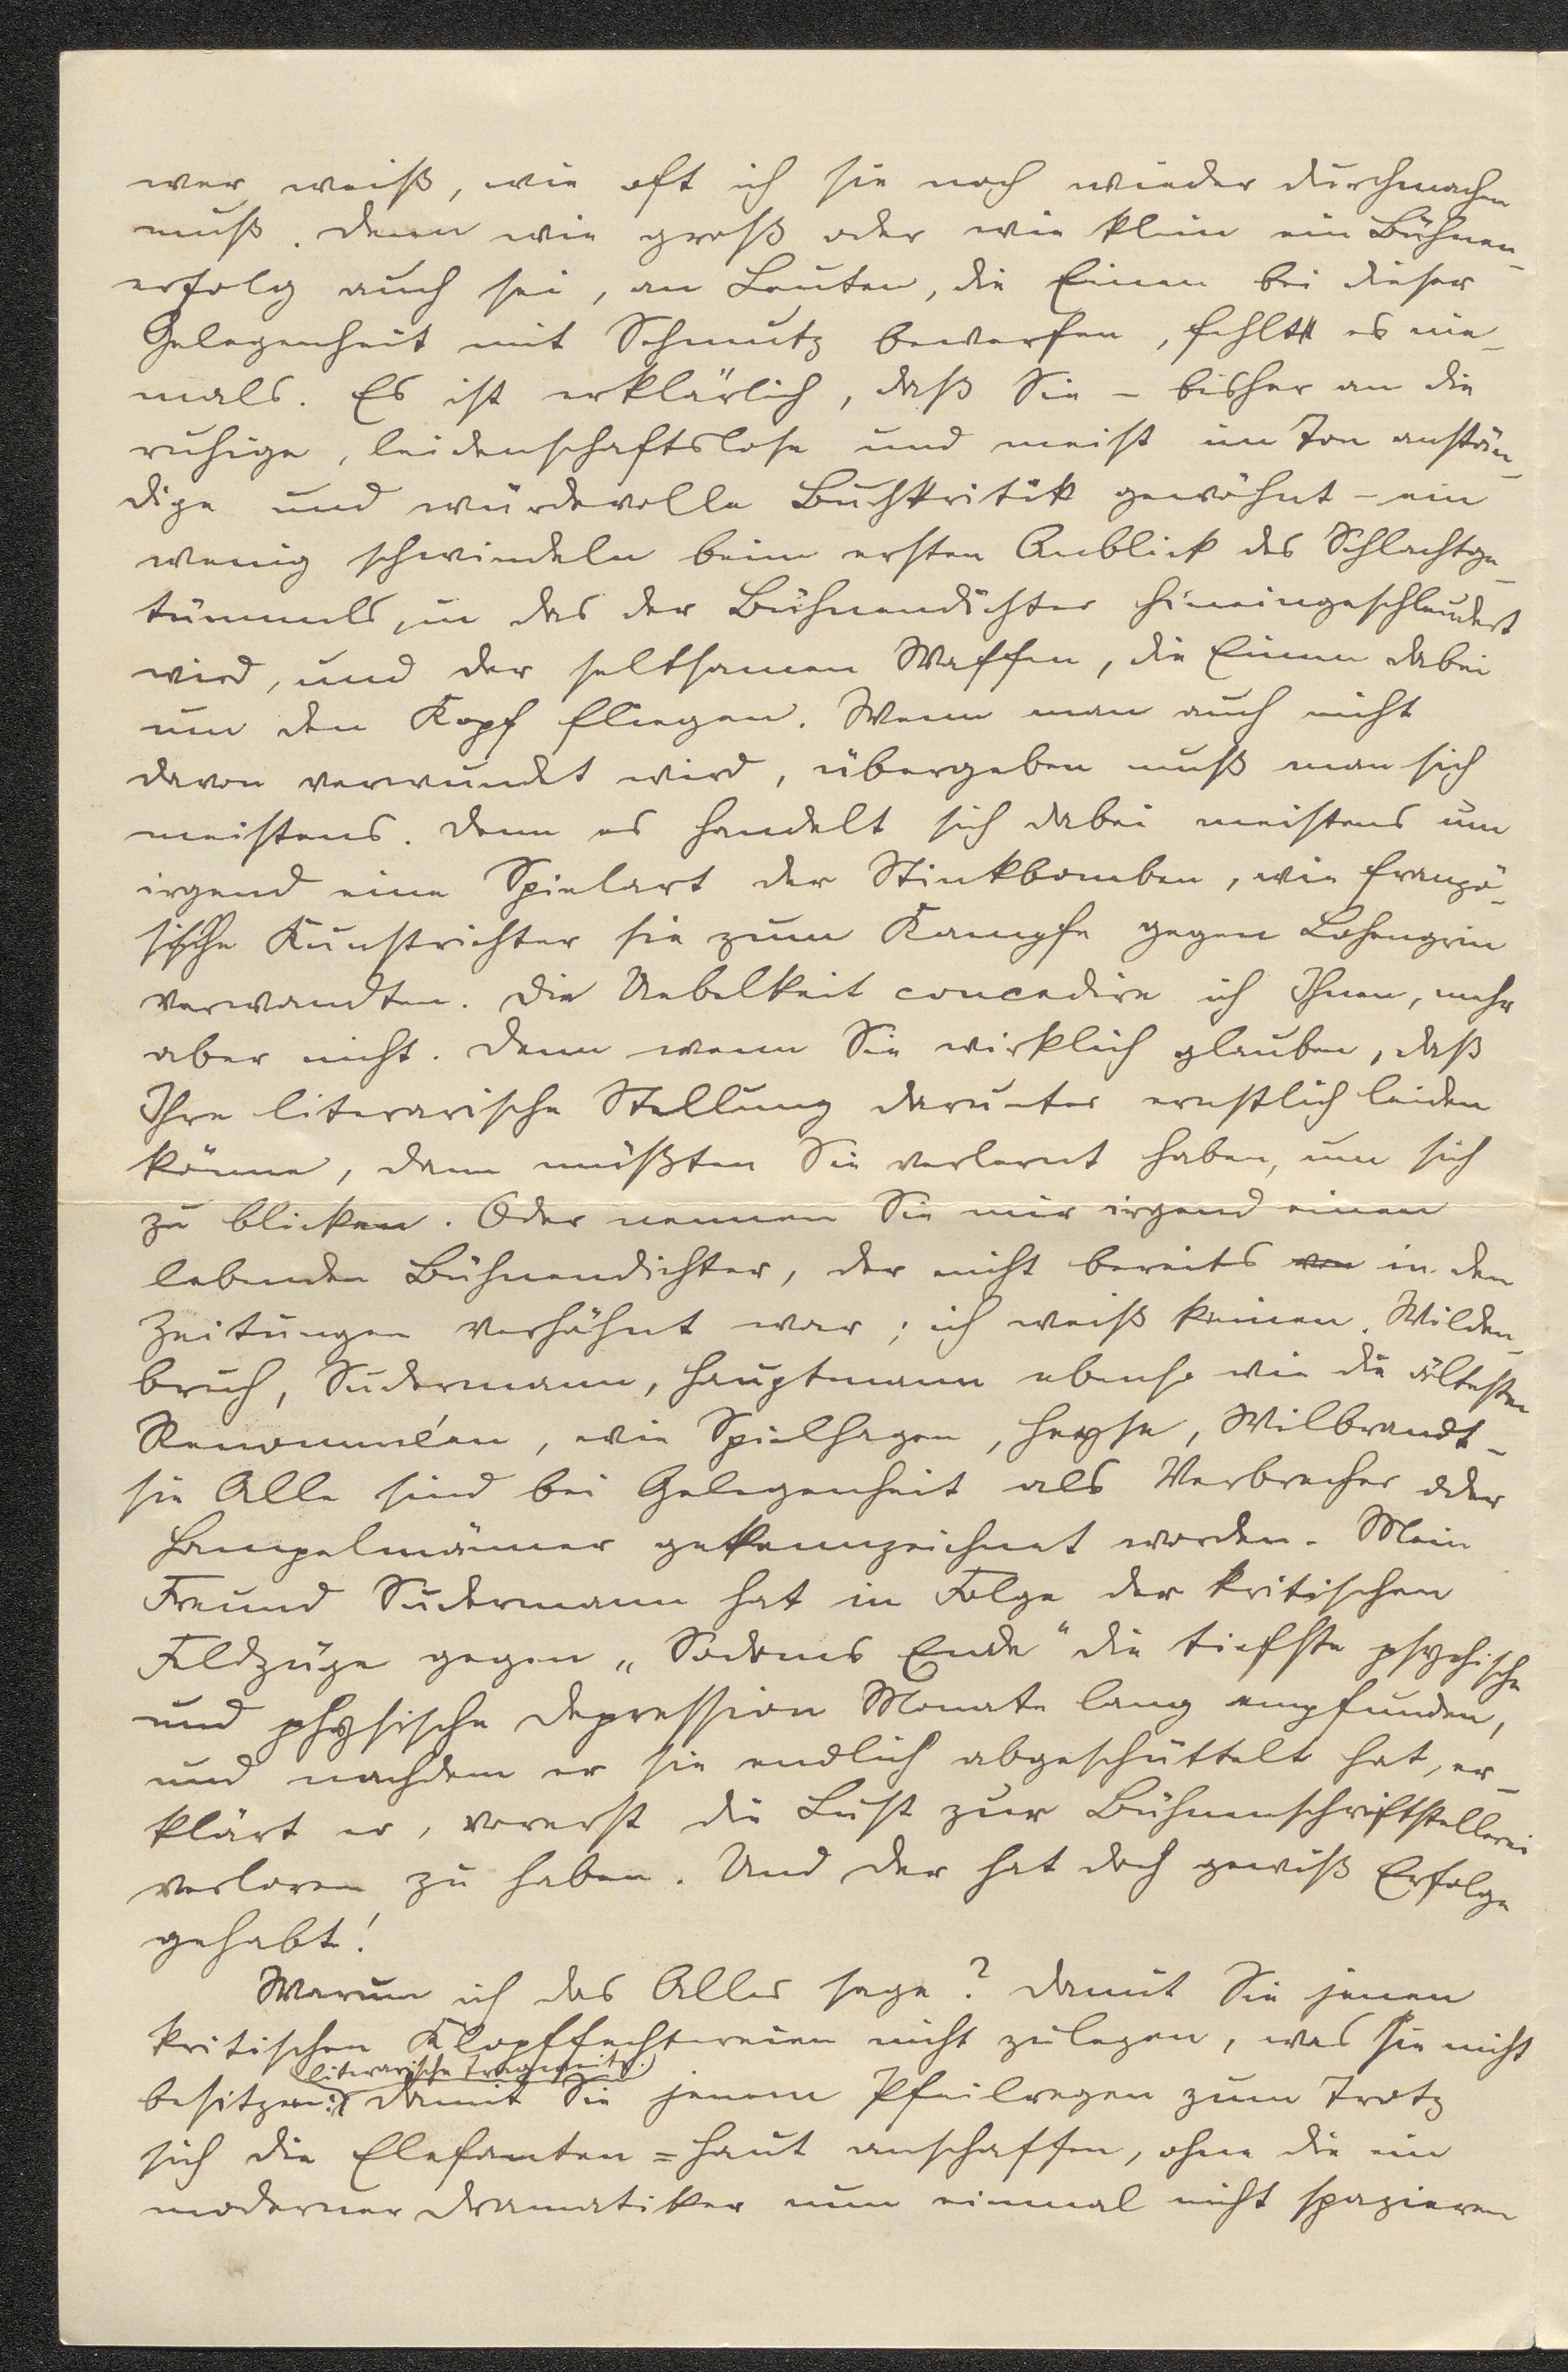 wer weiß, wie oft ich sie noch wieder durchmachen
muß. Denn wie groß oder wie klein ein Bühnen-
erfolg auch sei, an Leuten, die Einen bei dieser
Gelegenheit mit Schmutz bewerfen, fehlt es nie-
mals. Es ist erklärlich, daß Sie – bisher an die
ruhige, leidenschaftslose und meist im Ton anstän-
dige und würdevolle Buchkritik gewöhnt – ein
wenig schwindeln beim ersten Anblick des Schlachtge-
tümmels, in das der Bühnendichter hineingeschleudert
wird, und der seltsamen Waffen, die Einem dabei
um den Kopf fliegen. Wenn man auch nicht
davon verwundet wird, übergeben muß man sich
meistens. Denn es handelt sich dabei meistens um
irgend eine Spielart der Stinkbomben, wie franzö-
sische Kunstrichter sie zum Kampfe gegen Lohengrin
verwandten. Die Uebelkeit concedire ich Ihnen, mehr
aber nicht. Denn wenn Sie wirklich glauben, daß
Ihre literarische Stellung darunter ernstlich leiden
könne, dann müßten Sie verlernt haben, um sich
zu blicken. Oder nennen Sie mir irgend einen
lebenden Bühnendichter, der nicht bereits von in den
Zeitungen verhöhnt war; ich weiß keinen. Wilden-
bruch, Sudermann, Hauptmann ebenso wie die ältesten
Renomméen, wie Spielhagen, Heyse, Wilbrandt –
sie Alle sind bei Gelegenheit als Verbrecher oder
Hampelmänner gekennzeichnet worden. Mein
Freund Sudermann hat in Folge der kritischen
Feldzüge gegen „Sodoms Ende“ die tiefste psychische
und physische Depression Monate lang empfunden,
und nachdem er sie endlich abgeschüttelt hat, er-
klärt er, vorerst die Lust zur Bühnenschriftstellerei
verloren zu haben. Und der hat doch gewiß Erfolge
gehabt!
Warum ich das Alles sage? Damit Sie jenen
kritischen Klopffechtereien nicht zulegen, was sie nicht
besitzen: literarische Tragweite. Damit Sie jenem Pfeilregen zum Trotz
sich die Elefanten=Haut anschaffen, ohne die ein
moderner Dramatiker nun einmal nicht spazieren